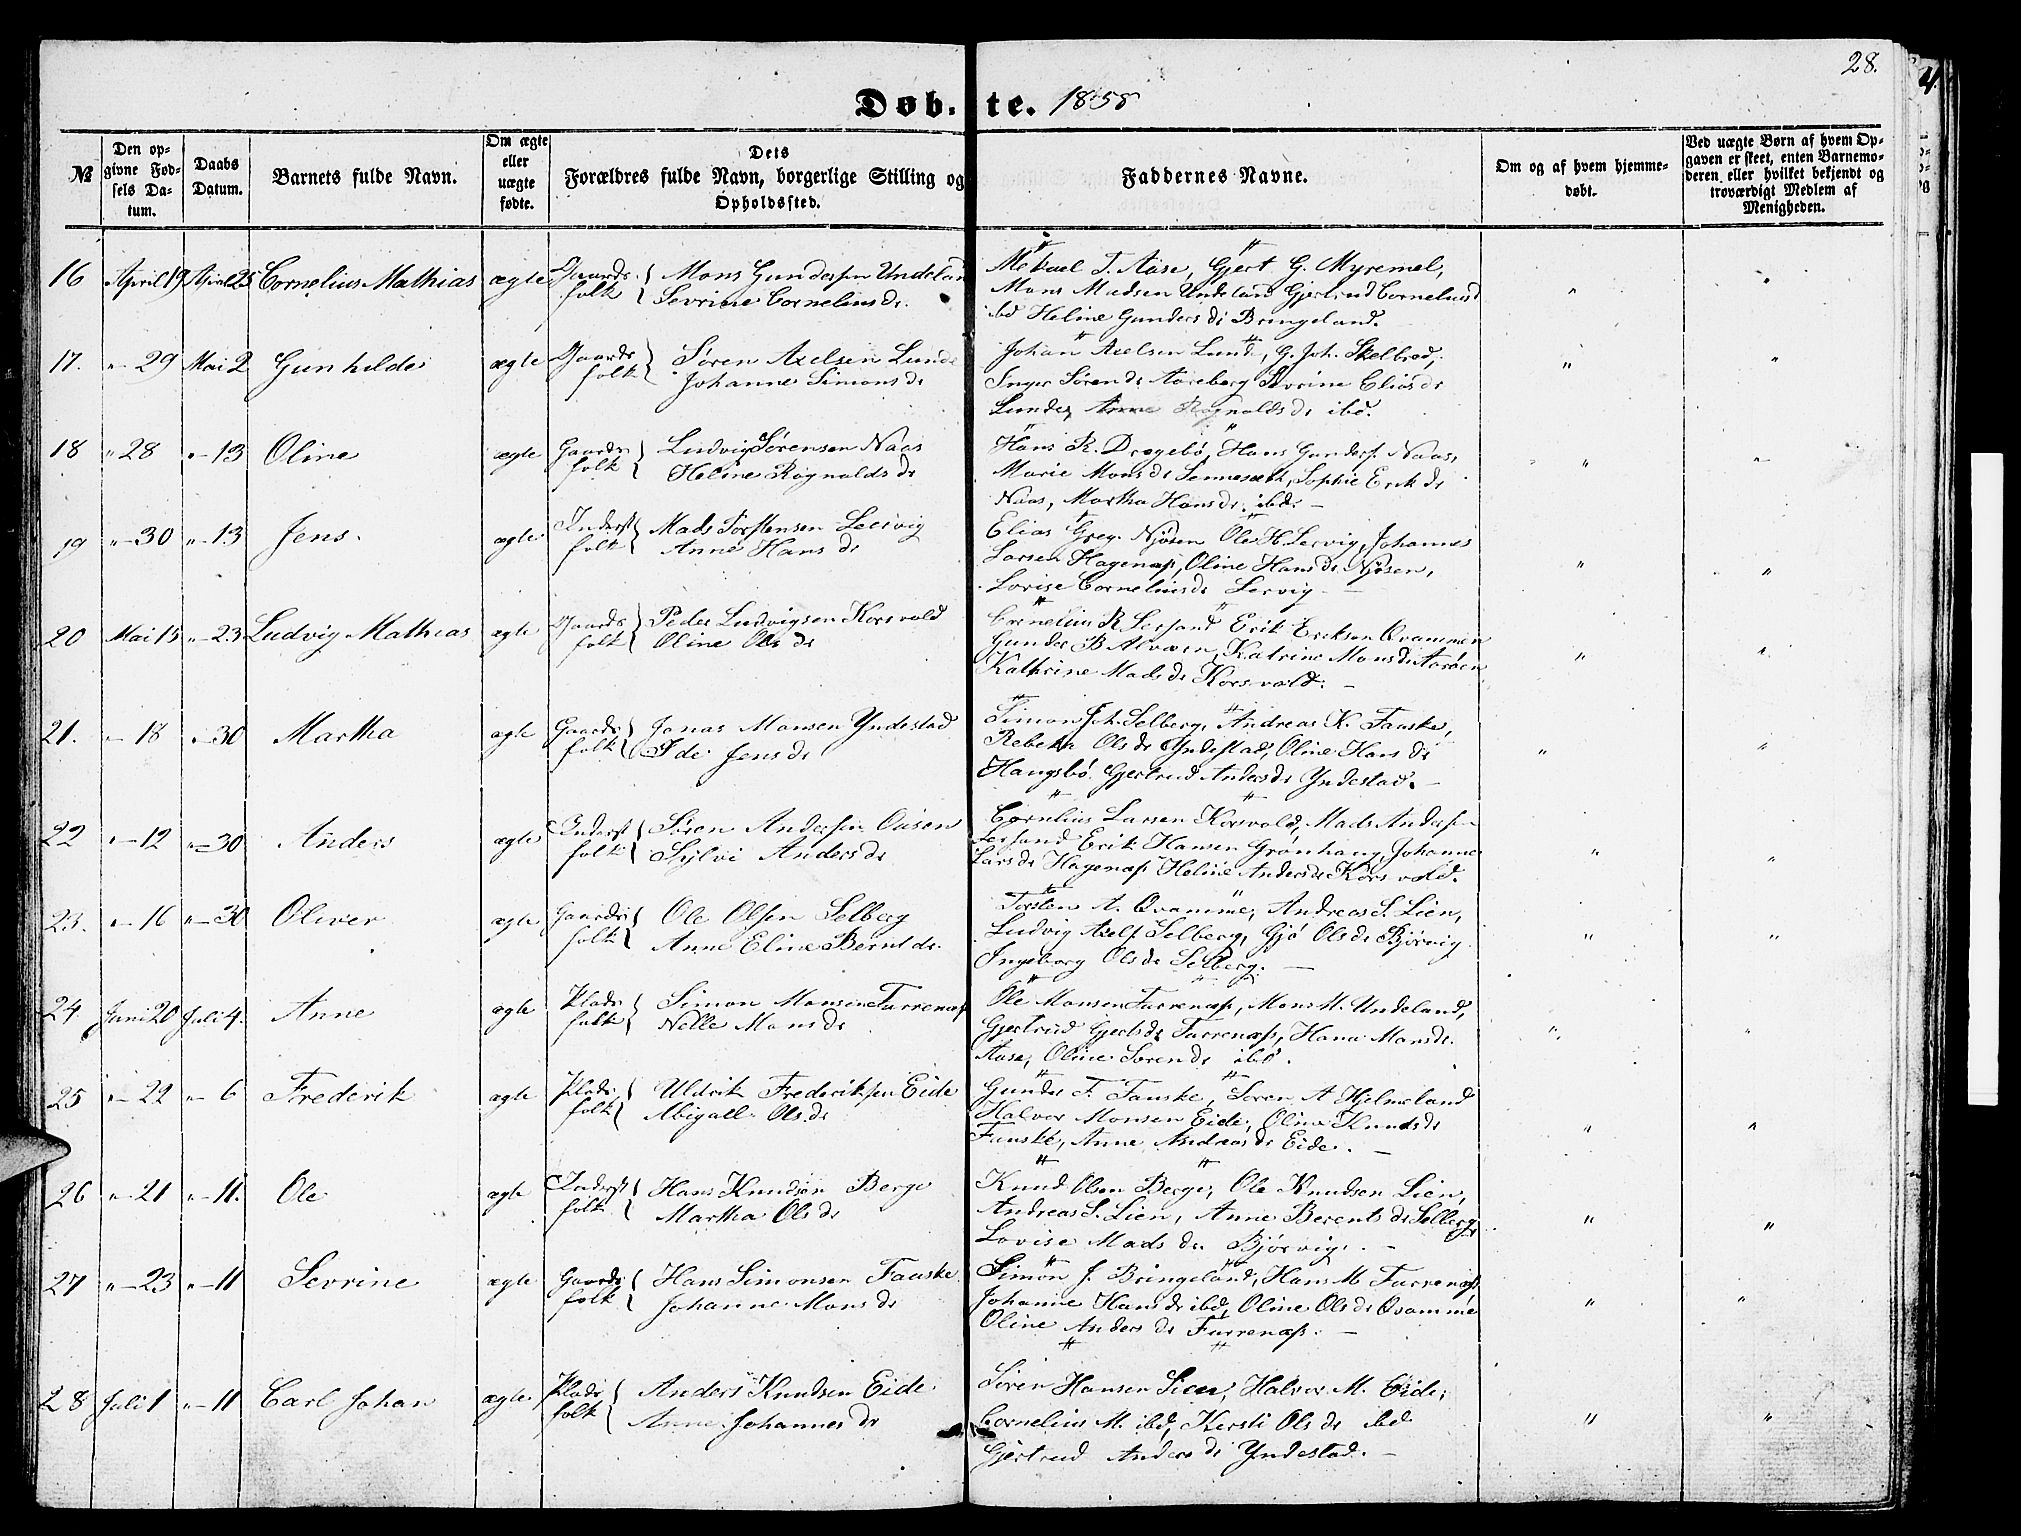 28.
Døb. te. 1858
№
Den op-
givne Fød-
sels Da-
tum.
Daabs
Datum.
Barnets fulde Navn.
Om ægte
eller
uægte
fødte.
Dets
Forældres fulde Navn, borgerlige Stilling og
Opholdssted.
Faddernes Navne.
Om og af hvem hjemme-
døbt.
Ved uægte Børn af hvem Op-
gaven er skeet, enten Barnemo-
deren eller hvilket bekjendt og
troværdigt Medlem af
Menigheden.
16 April 19 April 25 Cornelius Mathias ægte Gaards folk Mons Gundersen Undeland
Sevrine Cornelius dr.
Mekael T. Aase, Gjert G. Myremel,
Mons Madsen Undeland Gjertrud Cornelius d
ibd Heline Gunders dr Bringeland.
17. " 29 Mai 2 Gunhilde ægte Gaards folk Søren Axelsen Lunde
Johanne Simons dr
Johan Axelsen Lunde, G. Joh. Skelbred,
Inger Sørens dr Aareberg Sevrine Elias dr
Lunde, Anne Ragnalds dr ibd.
18 " 28 " 13 Oline ægte Gaards folk Ludvig Sørensen Naas
Heline Ragnalds dr
Hans R. Dregebø, Hans Gunders. Naas,
Marie Mons dr Sennesæth, Sophie Erik dr
Naas, Martha Hans dr. ibd. –
19 " 30 " 13 Jens. ægte Inderst folk Mads Torstensen Lervig
Anne Hans dr
Elias Greg. Njøsen Ole H. Lervig, Johannes
Larsen Hagenæs, Oline Hans dr Njøsen,
Lovise Cornelius dr Lervig –
20 Mai 15 " 23 Ludvig Mathias ægte Gaards folk Peder Ludvigsen Korsvold
Oline Ols dr
Cornelius R. Lersand Erik Eriksen Qvammen
Gunder B Alvæen, Katrine Mons dr Aarøen
Kathrine Mads dr Korsvold. –
21. " 18 " 30 Martha ægte Gaards folk Jonas Monsen Yndestad
Ide Jens dr
Simon Joh. Selberg, Andreas K. Fauske,
Rebekka Ols dr Yndestad, Oline Hans dr
Haugsbø Gjertrud Anders dr Yndestad. –
22 " 12 " 30 Anders ægte Inderst folk Søren Andersen Ousen
Sylvi Anders dr
Cornelius Larsen Korsvold, Mads Andersen
Lersand Erik Hansen Grønhaug, Johanne
Lars dr Hagenæs Heline Anders dr Korsvold.
23. " 16 " 30 Oliver ægte Gaards folk Ole Olsen Selberg
Anne Eline Bernt dr.
Torsten A. Qvamme, Andreas S. Lien,
Ludvig Axels. Selberg, Gjø Ols dr Bjørvig
Ingeborg Ols dr Selberg. –
24 Juni 20 Juli 4. Anne ægte Plads folk Simon Monsen Furrenæs
Nelle Mons dr
Ole Monsen Furrenæs, Mons M. Undeland,
Gjertrud Gjerts dr Furrenæs, Hana Mons dr.
Aase, Oline Sørens dr ibd.
25 " 22 " 6 Frederik ægte Plads folk Uldrik Frederiksen Eide
Abigael Ols dr
Gunder F. Fauske, Søren A Hjelmeland
Halvor Monsen Eide, Oline Knuds dr
Fauske, Anne Andreas dr Eide. –
26 " 21 " 11. Ole ægte Inderst folk Hans Knudsen Berge
Martha Ols dr
Knud Olsen Berge, Ole Knudsen Lien,
Andreas S. Lien, Anne Berents dr Selberg,
Lovise Mads dr Bjørvig. –
27 " 23 " 11 Sevrine ægte Gaards folk Hans Simonsen Fauske
Johanne Mons dr
Simon J. Bringeland, Hans M Furrenæs,
Johanne Hans dr ibd, Oline Ols dr Qvamme
Oline Anders dr Furrenæs. –
28 Juli 1 " 11 Carl Johan ægte Plads folk Anders Knudsen Eide
Anne Johannes dr
Søren Hansen Lien, Halvor M. Eide,
Cornelius M. ibd, Kersti Ols dr ibd
Gjertrud Anders dr Yndestad. –